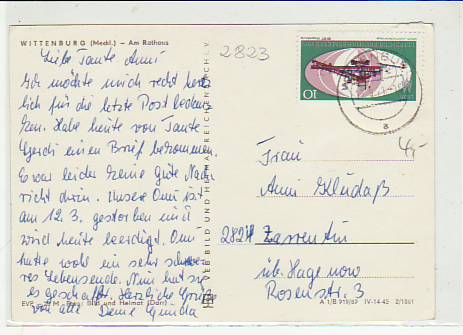 WITTENBURG (Meckl.) – Am Rathaus
2823
Liebe Tante Anni
Ich möchte mich recht herz
lich für die letzte Post bedan
ken. Habe heute von Tante
einen Brief bekommen.
Es war leider keine gute Nach
richt drin. Unsere Omi ist
am 12. 3. gestorben und
wird heute beerdigt. Omi
hatte wohl ein sehr schwe
res Lebensende. Nun hat sie
es geschafft. Herzliche Grüße
von alle Deine Gunda
EVP
Foto: Bild und Heimat
BILD UND HEIMAT REICHENBACH I. V.
10
a
4,-
Frau
Anni
2824 Zarrentin
über Hagenow
Rosenstr. 3
A 1/B 919/69 IV-14-45 2/1061